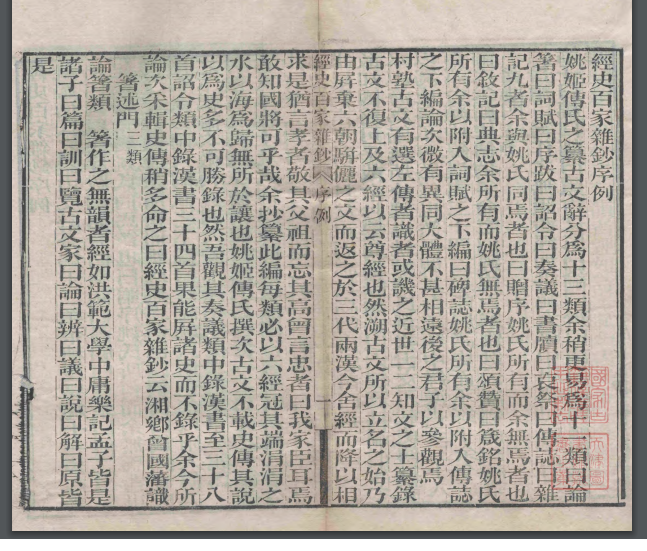 經史百家雜鈔序例
姚姬傳氏之纂古文辭分爲十三類余稍更易爲十一類曰論
箸曰詞賦曰序跋曰詔令曰奏議曰書牘曰哀祭曰傳誌曰雜
記九者余與姚氏同焉者也曰贈序姚氏所有而余無焉者也
曰敘記曰典志余所有而姚氏無焉者也曰頌贊曰箴銘姚氏
所有余以附入詞賦之下編曰碑誌姚氏所有余以附入傳誌
之下編論次微有異同大體不甚相遠後之君子以參觀焉
村塾古文有選左傳者識者或譏之近世一二知文之士纂錄
古文不復上及六經以云尊經也然溯古文所以立名之始乃
由屏棄六朝駢儷之文而返之於三代兩漢今舍經而降以相
經史百家雜鈔 序例 一
求是猶言孝者敬其父祖而忘其高曾言忠者曰我家臣耳焉
敢知國將可乎哉余抄纂此編每類必以六經冠其端涓涓之
水以海爲歸無所於讓也姚姬傳氏撰次古文不載史傳其說
以爲史多不可勝錄也然吾觀其奏議類中錄漢書至三十八
首詔令類中錄漢書三十四首果能屏諸史而不錄乎余今所
論次采輯史傳稍多命之曰經史百家雜鈔云湘鄉曾國藩識
箸述門 三類
論箸類 箸作之無韻者經如洪範大學中庸樂記孟子皆是
諸子曰篇曰訓曰覽古文家曰論曰辨曰議曰說曰解曰原皆
是